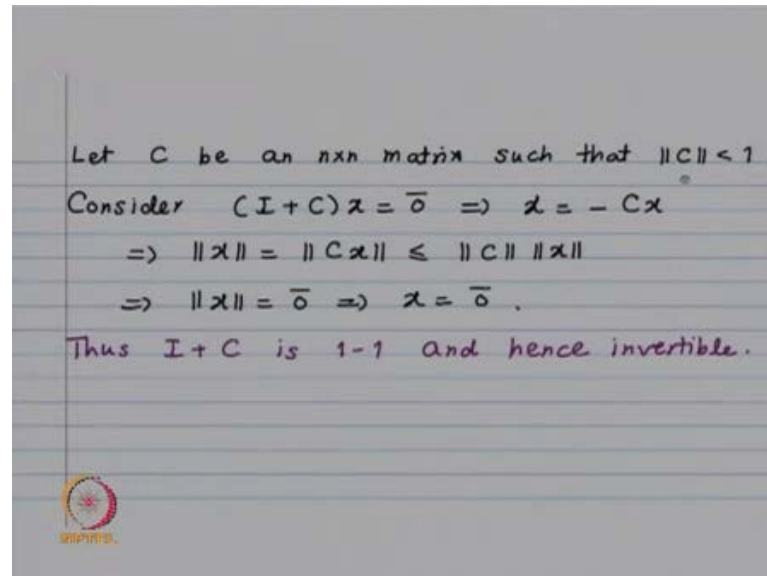 Let C be an nxn matrix such that ||C|| < 1
Consider (I + C) x = 0̅ => x = - Cx
=> ||x|| = ||Cx|| ≤ ||C|| ||x||
=> ||x|| = 0̅ => x = 0̅ .
Thus I + C is 1-1 and hence invertible.